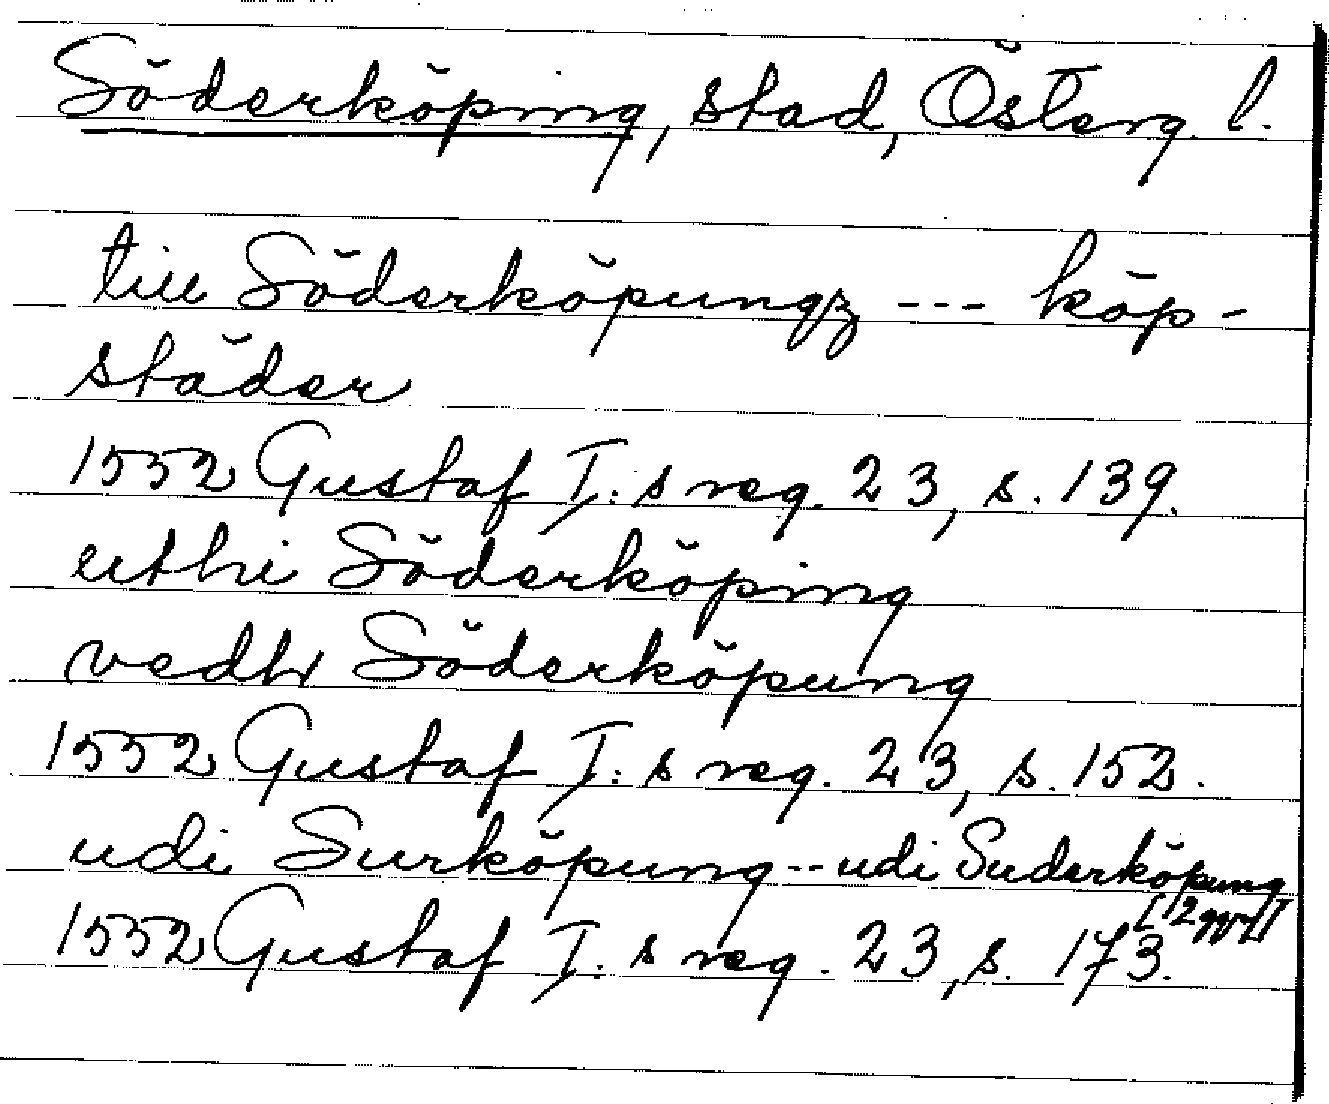 Söderköping, stad, Österg. l.
till Söderköpungz --- köp-
städer
1552 Gustaf I:s reg. 23, s. 139.
uthi Söderköping
vedh Söderköpung
1552 Gustaf I:s reg. 23, s. 152.
udi Surköpung -- udi Suderköpung
[2 ggr]
1552 Gustaf I:s reg. 23, s. 173.